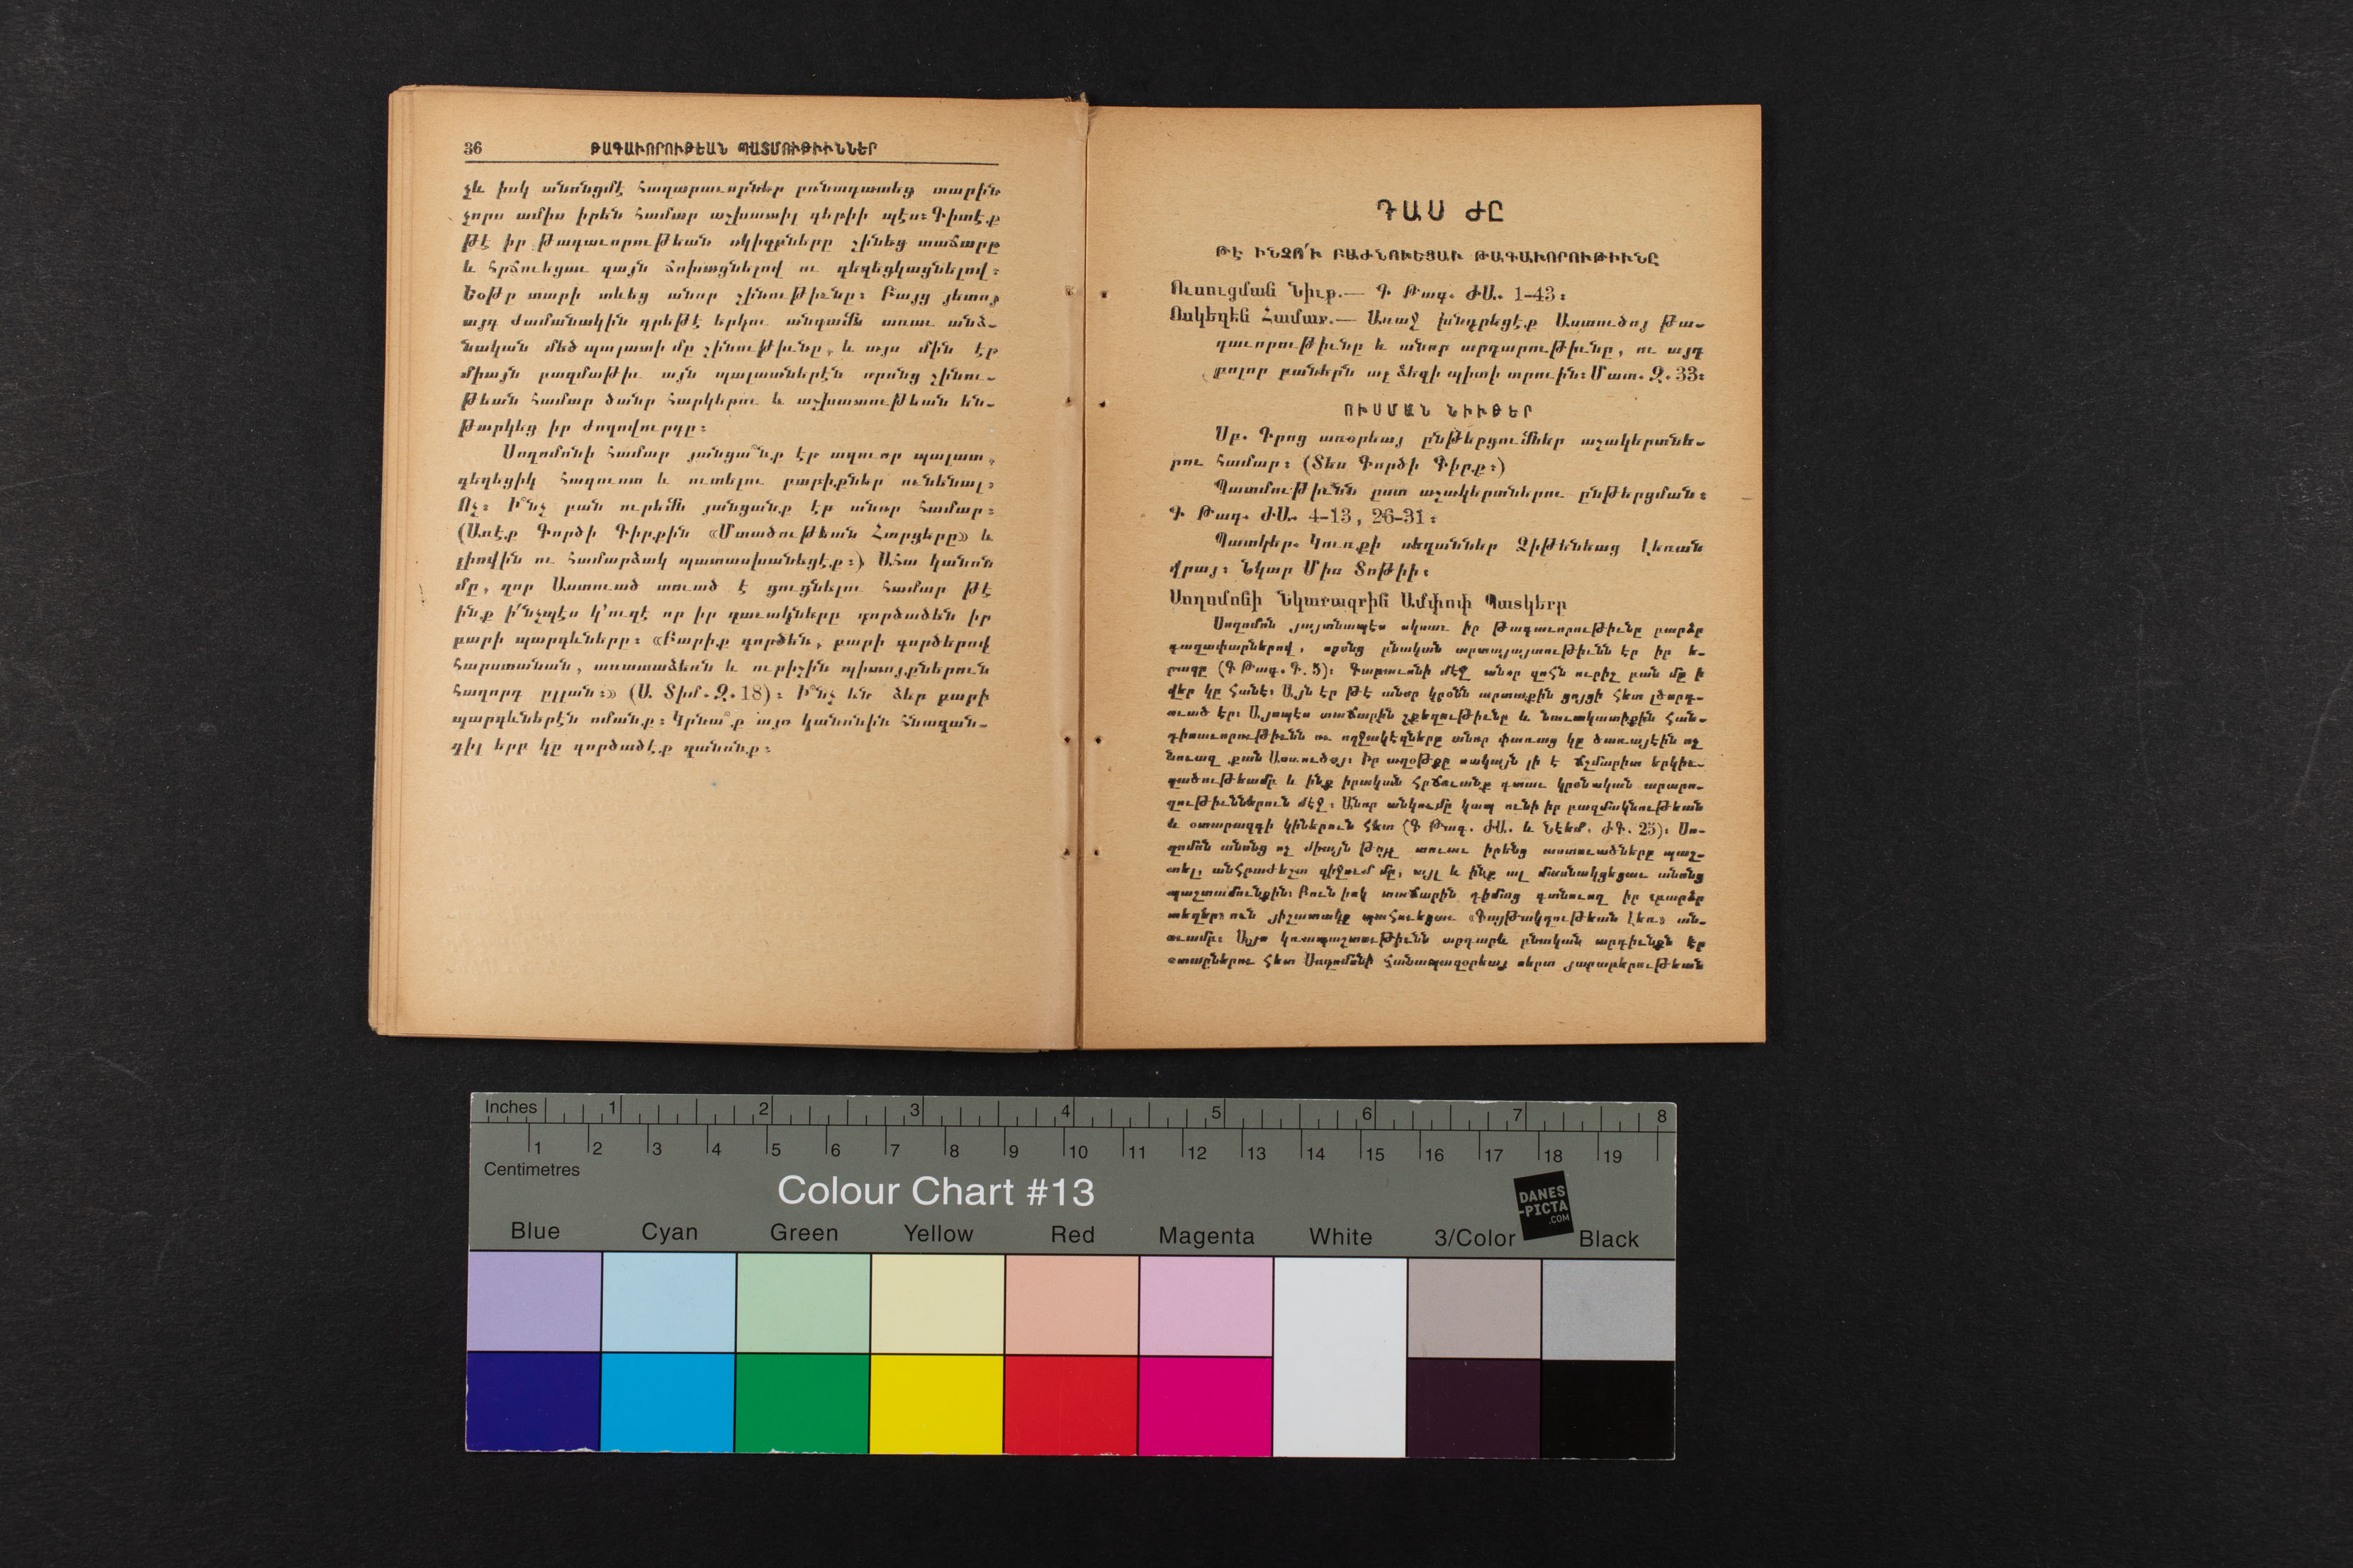 36 ԹԱԳԱՒՈՐՈՒԹԵԱՆ ՊԱՏՄՈՒԹԻՒՆՆԵՐ
չև իսկ անոնցմէ հազարաւորներ բռնադատեց տարին
չորս ամիս իրեն համար աշխատիլ գերիի պէս։ Գիտէք
թէ իր թագաւորութեան սկիզբները շինեց տաճարը
և հրճուեցաւ զայն ճոխացնելով ու գեղեցկացնելով։
Եօթը տարի տևեց անոր շինութիւնը։ Բայց յետոյ
այդ ժամանակին գրեթէ երկու անգամն առաւ անձ-
նական մեծ պալատի մը շինութիւնը, և այս մին էր
միայն բազմաթիւ այն պալատներէն որոնց շինու-
թեան համար ծանր հարկերու և աշխատութեան են-
թարկեց իր ժողովուրդը։
Սողոմոնի համար յանցա՞նք էր աղուոր պալատ,
գեղեցիկ հագուստ և ուտելու բարիքներ ունենալ։
Ոչ։ Ի՞նչ բան ուրեմն յանցանք էր անոր համար։
(Առէք Գործի Գիրքին «Մտածութեան Հարցերը» և
լիովին ու համարձակ պատասխանեցէք։) Ահա կանոն
մը, զոր Աստուած տուած է ցուցնելու համար թէ
ինք ի՛նչպէս կ՚ուզէ որ իր զաւակները գործածեն իր
բարի պարգևները։ «Բարիք գործեն, բարի գործերով
հարստանան, առատաձեռն և ուրիշին պիտոյքներուն
հաղորդ ըլլան։» (Ա. Տիմ. Զ. 18)։ Ի՞նչ են ձեր բարի
պարգևներէն ոմանք։ Կրնա՞ք այս կանոնին հնազան-
դիլ երբ կը գործածէք զանոնք։
ԴԱՍ ԺԸ
ԹԷ ԻՆՉՈ՛Ւ ԲԱԺՆՈՒԵՑԱՒ ԹԱԳԱՒՈՐՈՒԹԻՒՆԸ
Ուսուցման Նիւթ.— Գ Թագ. ԺԱ. 1-43։
Ոսկեղէն Համար.— Առաջ խնդրեցէք Աստուծոյ թա-
գաւորութիւնը և անոր արդարութիւնը, ու այդ
բոլոր բաներն ալ ձեզի պիտի տրուին։ Մատ. Զ. 33։
ՈՒՍՄԱՆ ՆԻՒԹԵՐ
Սբ. Գրոց առօրեայ ընթերցումներ աշակերտնե-
րու համար։ (Տես Գործի Գիրք։)
Պատմութիւնն ըստ աշակերտներու ընթերցման։
Գ Թագ. ԺԱ. 4-13, 26-31։
Պատկեր. Կուռքի սեղաններ Ձիթենեաց Լեռան
վրայ։ Նկար Միս Տոթիի։
Սողոմոնի Նկարագրին Ամփոփ Պատկերը
Սողոմոն յայտնապէս սկսաւ իր թագաւորութիւնը բարձր
գաղափարներով, որոնց բնական արտայայտութիւնն էր իր ե-
րազը (Գ Թագ. Գ. 5)։ Գաբաւոնի մէջ անոր զոհն ուրիշ բան մը ի
վեր կը հանէ։ Այն էր թէ անոր կրօնն արտաքին ցոյցի հետ լծորդ-
ուած էր։ Այսպէս տաճարին շքեղութիւնը և նաւակատիքին հան-
դիսաւորութիւնն ու ողջակէզները անոր փառաց կը ծառայէին ոչ
նուազ քան Աստուծոյ։ Իր աղօթքը սակայն լի է ճշմարիտ երկիւ-
ղածութեամբ և ինք իրական հրճուանք գտաւ կրօնական արարո-
ղութիւններուն մէջ։ Անոր անկումը կապ ունի իր բազմակնութեան
և օտարազգի կիներուն հետ (Գ Թագ. ԺԱ. և Նէեմ. ԺԳ. 25)։ Սո-
ղոմոն անոնց ոչ միայն թոյլ տուաւ իրենց աստուածները պաշ-
տել, անհրաժեշտ զիջում մը, այլ և ինք ալ մասնակցեցաւ անոնց
պաշտամունքին։ Բուն իսկ տաճարին դիմաց գտնուող իր «բարձր
տեղեր»ուն յիշատակը պահուեցաւ «Գայթակղութեան Լեռ» ան-
ուամբ։ Այս կռապաշտութիւնն արդարև բնական արդիւնքն էր
օտարներու հետ Սողոմոնի հանապազօրեայ սերտ յարաբերութեան
Inches 1 2 3 4 5 6 7 8
1 2 3 4 5 6 7 8 9 10 11 12 13 14 15 16 17 18 19
Centimetres
Colour Chart #13
DANES
-PICTA
.COM
Blue Cyan Green Yellow Red Magenta White 3/Color Black